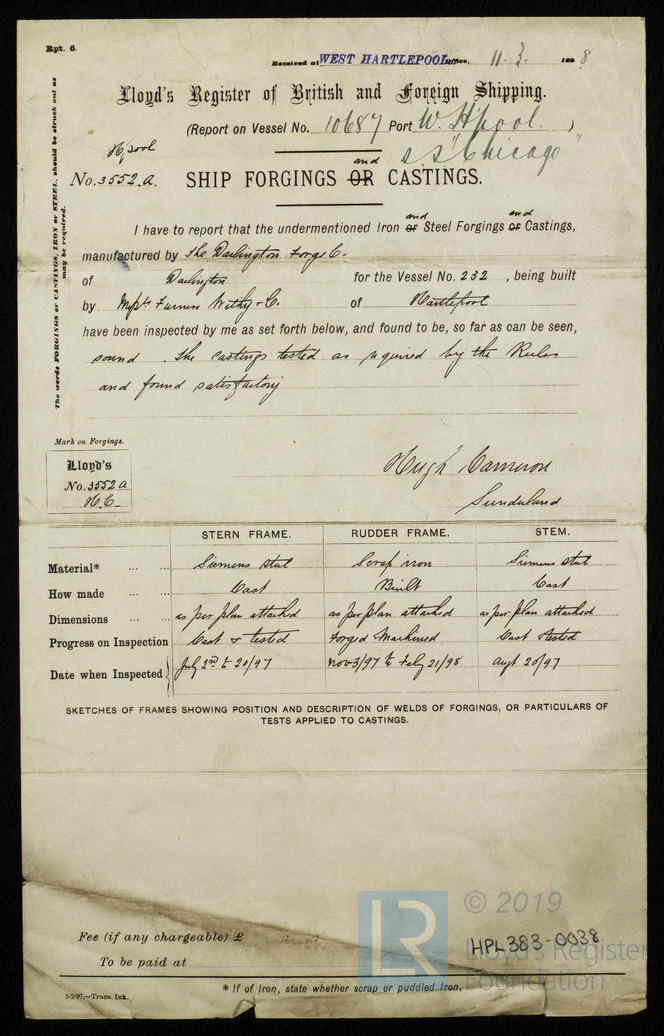 Rpt. 6.
Received at WEST HARTLEPOOL Office, 11.3. 1898
Lloyd's Register of British and Foreign Shipping.
(Report on Vessel No. 10687 Port W. H'pool. )
S.S "Chicago"
H'pool
No. 3552.A. SHIP FORGINGS OR and CASTINGS.
The words FORGINGS or CASTINGS, IRON or STEEL, should be struck out as may be required.
I have to report that the undermentioned Iron or and Steel Forgings or and Castings,
manufactured by The Darlington Forge Co.
of Darlington for the Vessel No. 232 , being built
by Messrs Furness Withy & Co. of Hartlepool
have been inspected by me as set forth below, and found to be, so far as can be seen,
sound. The castings tested as required by the Rules
and found satisfactory
Mark on Forgings.
Lloyd's
No. 3552 A
H.C.
Hugh Cameron
Sunderland
STERN FRAME. RUDDER FRAME. STEM.
Material* ... ... Siemens steel Scrap iron Siemens steel
How made ... ... Cast Built Cast
Dimensions ... ... as per plan attached as per plan attached as per plan attached
Progress on Inspection Cast & tested Forged Machined Cast tested
Date when Inspected July 2nd to 20/97 Nov 3/97 to Feby 21/98 Augt 20/97
SKETCHES OF FRAMES SHOWING POSITION AND DESCRIPTION OF WELDS OF FORGINGS, OR PARTICULARS OF
TESTS APPLIED TO CASTINGS.
Fee (if any chargeable) £ : :
To be paid at
* If of Iron, state whether scrap or puddled Iron.
3/2/97.—Trans. Ink.
HPL383-0038
LR
© 2019
Lloyd's Register
Foundation